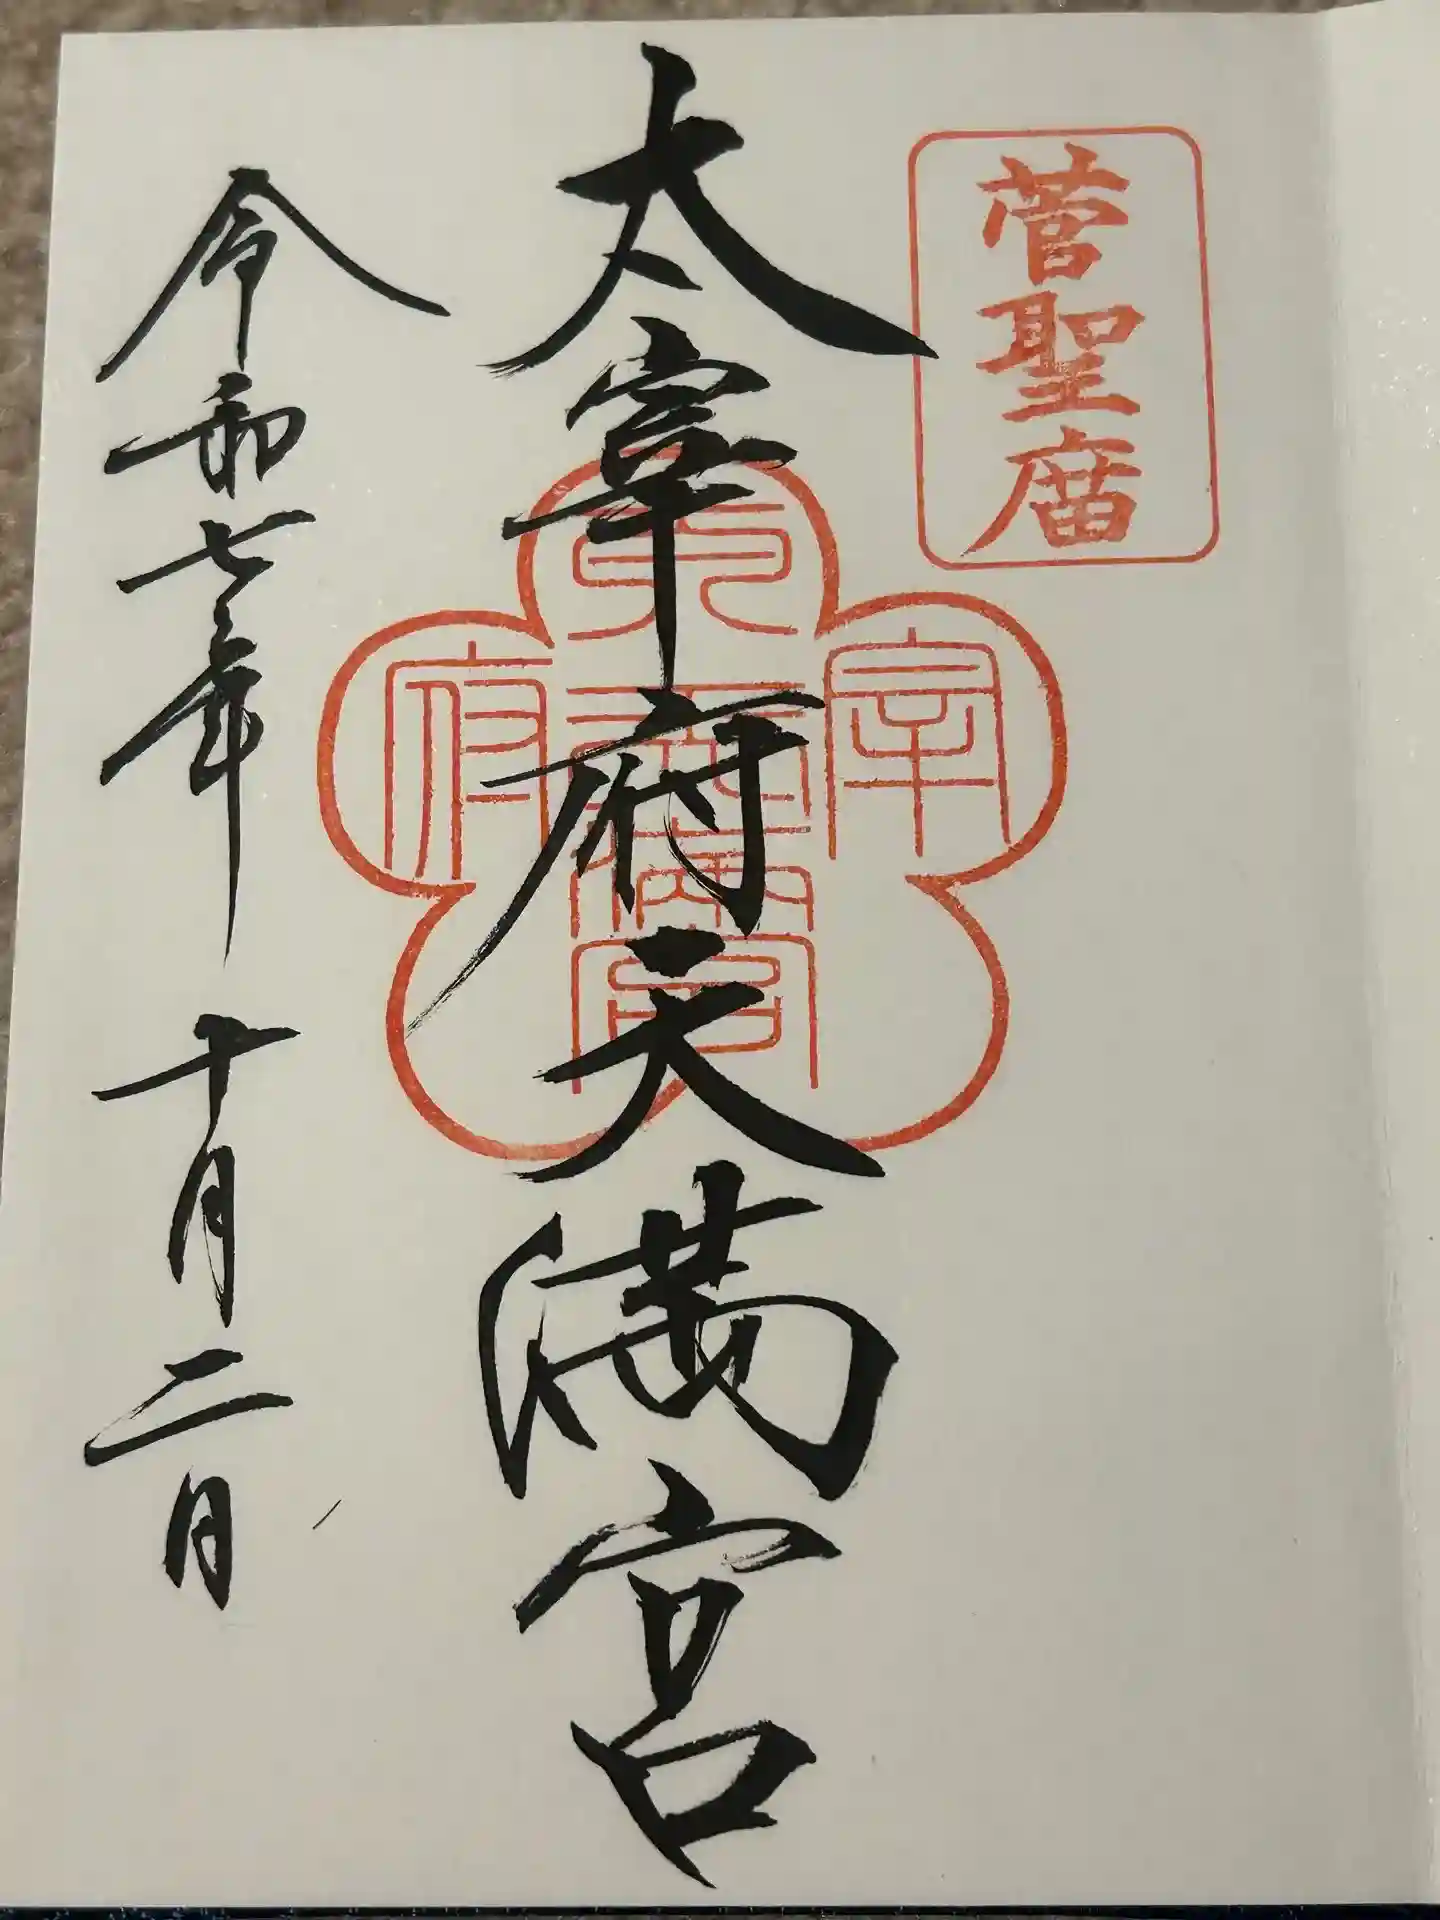 菅聖庿
太宰府天満宮
太宰府天満宮
令和七年 十月二日